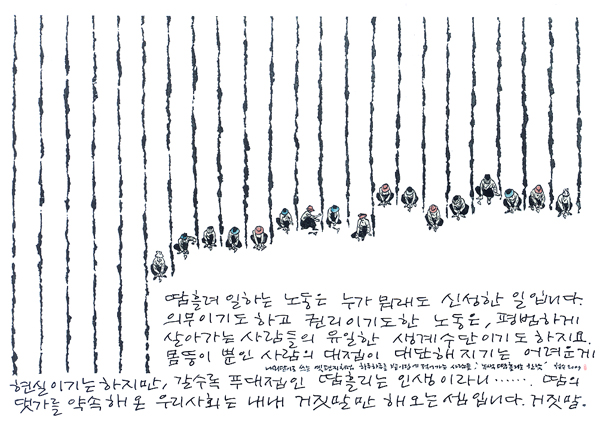 땀흘려 일하는 노동은 누가 뭐래도 신성한 일입니다.
의무이기도하고 권리이기도한 노동은, 평범하게
살아가는 사람들의 유일한 생계수단이기도 하지요.
몸뚱이 뿐인 사람의 대접이 대단해지기는 어려운게
현실이기는하지만, 갈수록 푸대접인 땀흘리는 인생이라니……. 땀의
댓가를 약속해 온 우리사회는 내내 거짓말만 해오는 셈입니다. 거짓말.